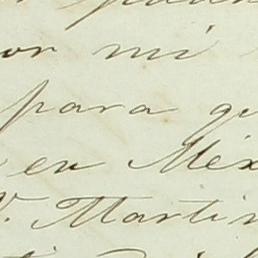 or mi
para qu
en Méx
V. Martin